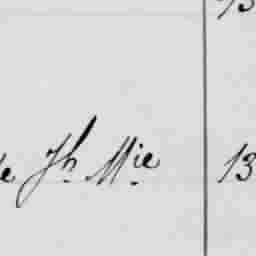 Jh. Mie 13